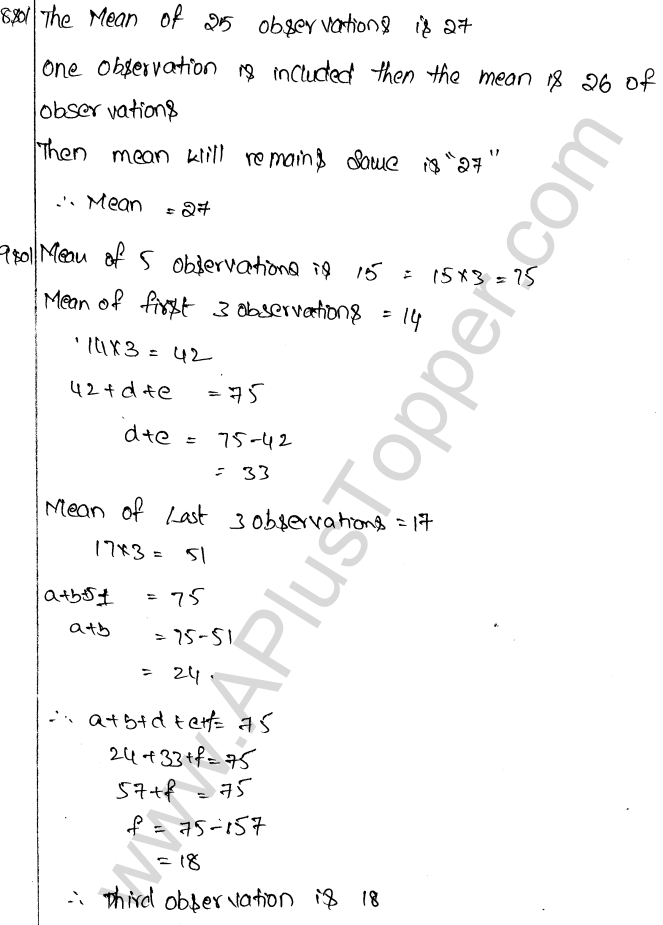 8 sol The Mean of 25 observations is 27
one observation is included then the mean is 26 of
observations
Then mean will remains same is "27"
∴ Mean = 27
9 sol Mean of 5 observations is 15 = 15×3 = 75
Mean of first 3 observations = 14
14×3 = 42
42+d+e = 75
d+e = 75-42
= 33
Mean of Last 3 observations = 17
17×3 = 51
a+b51 = 75
a+b = 75-51
= 24.
∴ a+b+d+e+f= 75
24+33+f=75
57+f = 75
f = 75-157
= 18
∴ Third observation is 18
www.APlusTopper.com